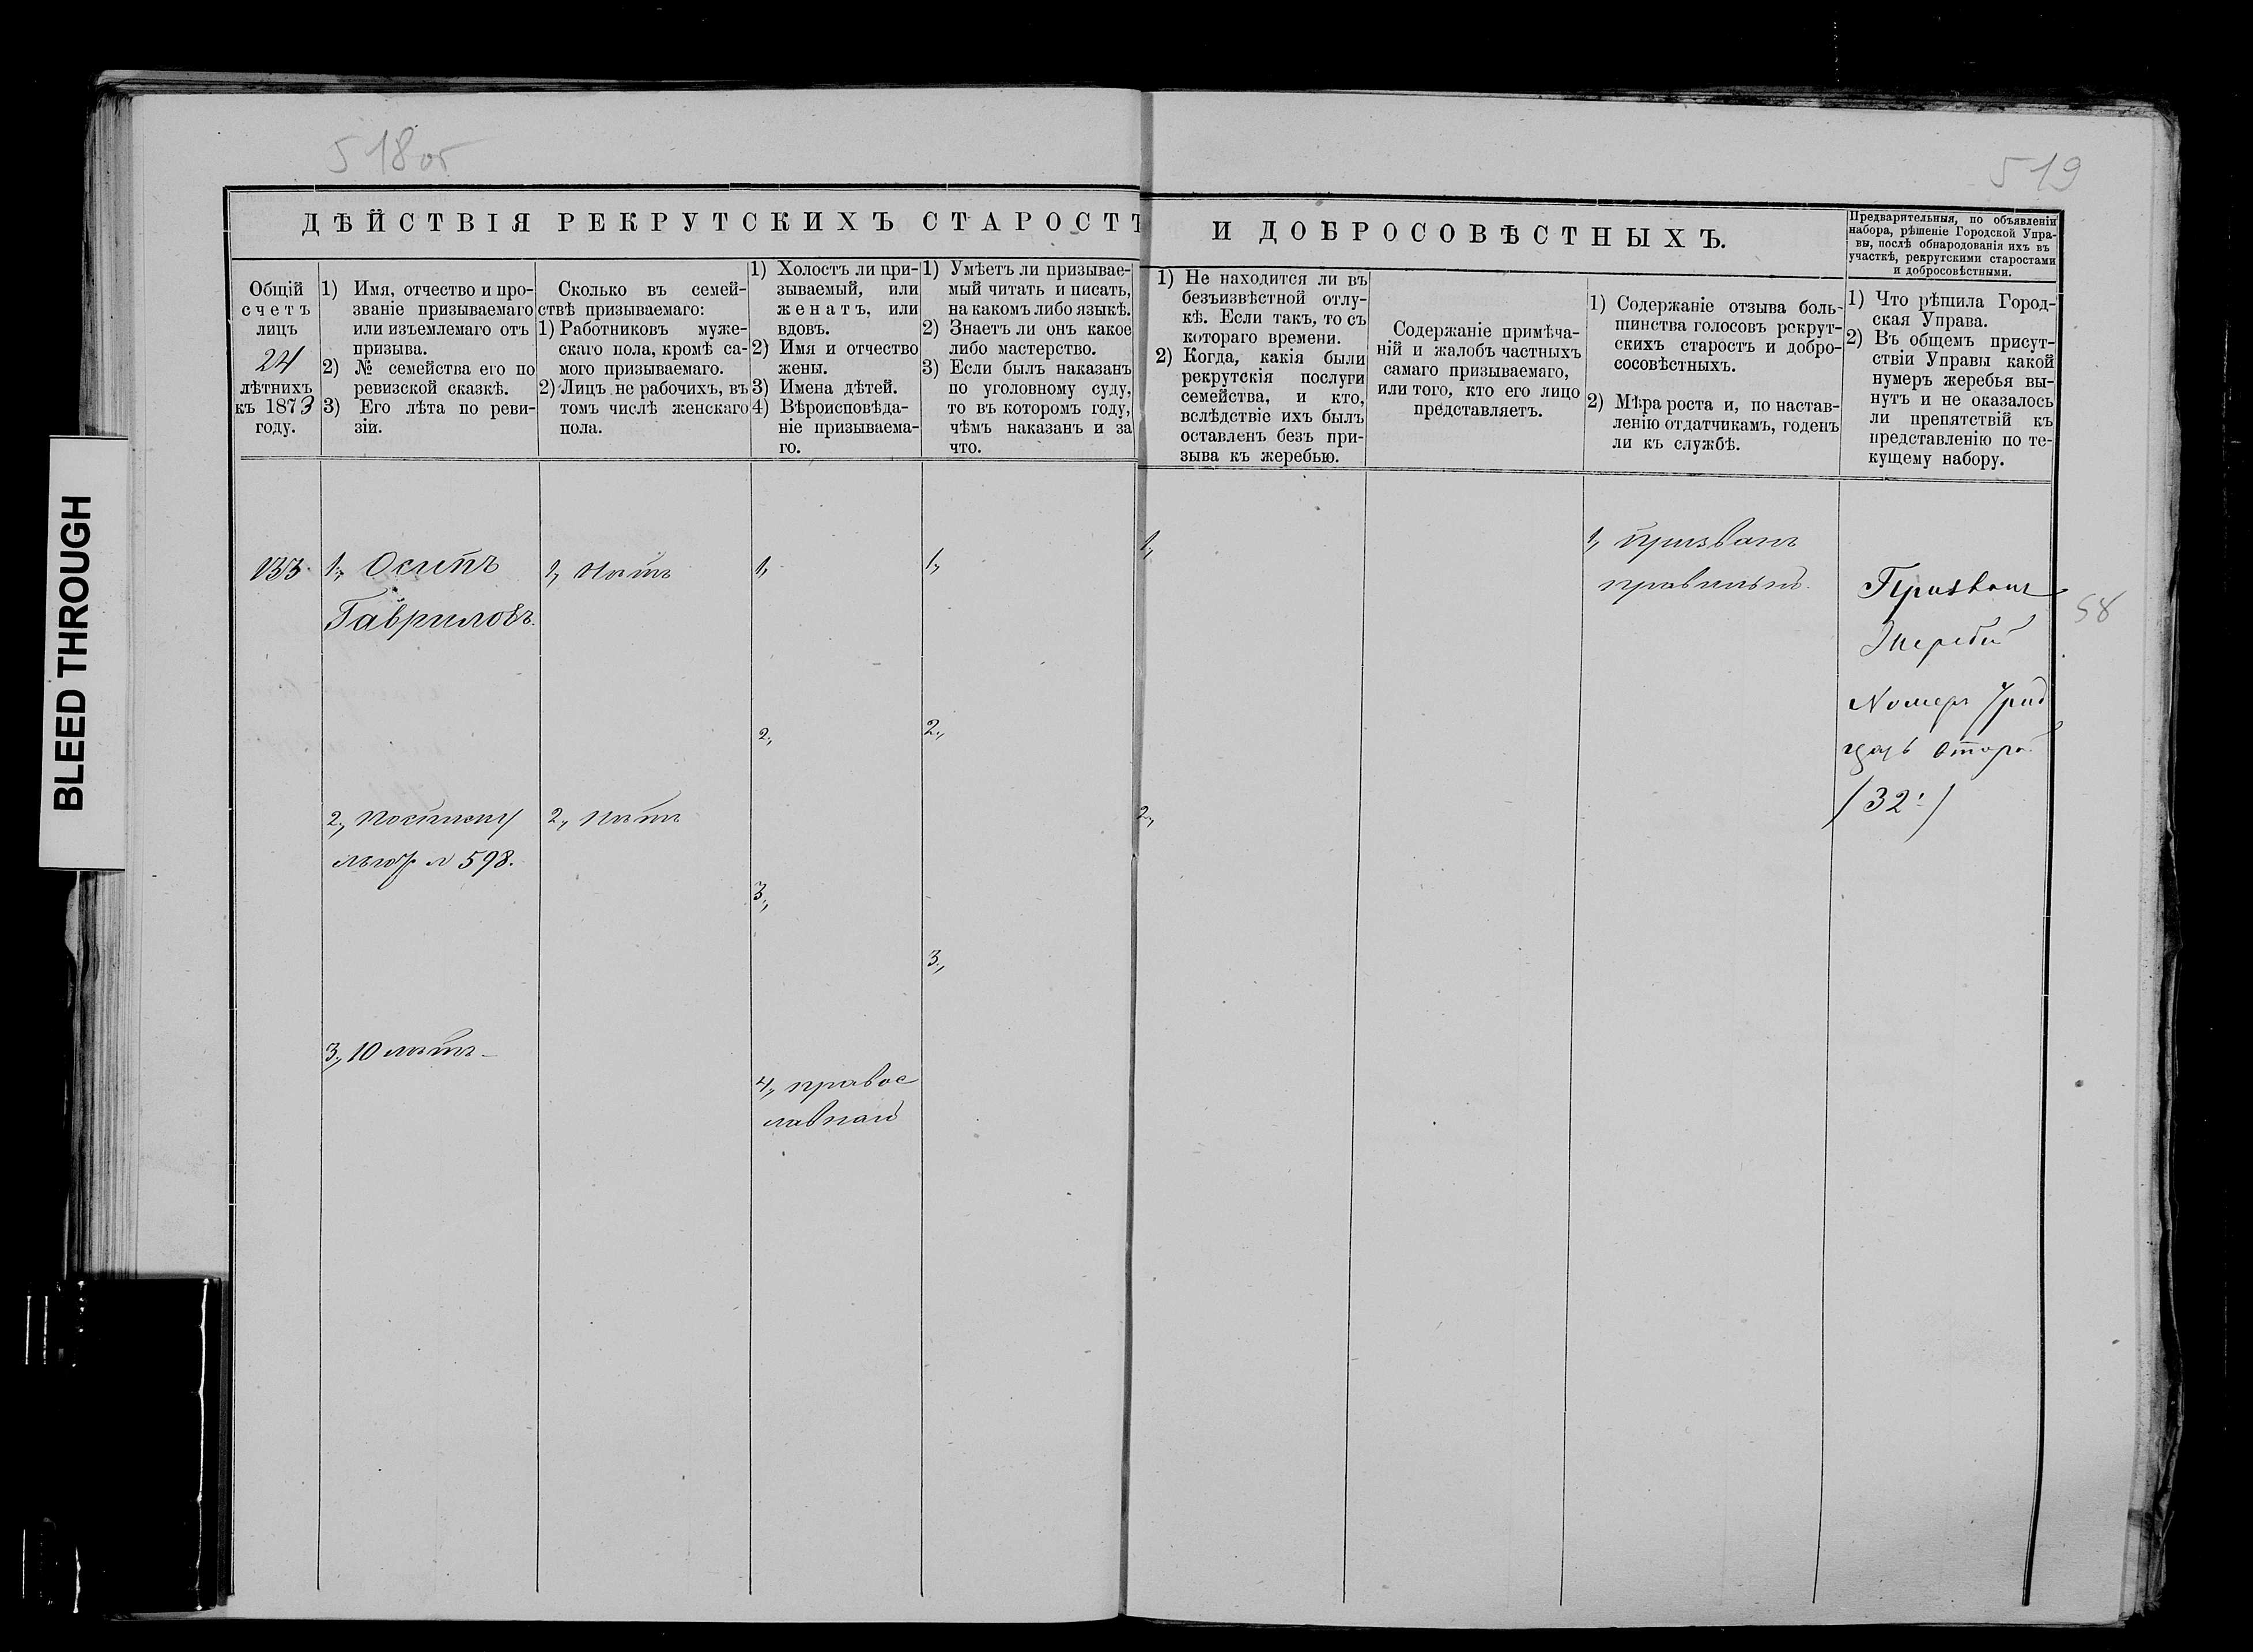 518 об
519
ДѢЙСТВІЯ РЕКРУТСКИХЪ СТАРОСТЪ
И ДОБРОСОВѢСТНЫХЪ.
Предварительныя, по объявленіи
набора, рѣшеніе Городской Упра-
вы, послѣ обнародованія ихъ въ
участкѣ, рекрутскими старостами
и добросовѣстными.
Общій
счетъ
лицъ
24
лѣтнихъ
къ 1873
году.
1) Имя, отчество и про-
званіе призываемаго
или изъемлемаго отъ
призыва.
2) № семейства его по
ревизской сказкѣ.
3) Его лѣта по реви-
зіи.
Сколько въ семей-
ствѣ призываемаго:
1) Работниковъ муже-
скаго пола, кромѣ са-
мого призываемаго.
2) Лицъ не рабочихъ, въ
томъ числѣ женскаго
пола.
1) Холостъ ли при-
зываемый, или
женатъ, или
вдовъ.
2) Имя и отчество
жены.
3) Имена дѣтей.
4) Вѣроисповѣда-
ніе призываема-
го.
1) Умѣетъ ли призывае-
мый читать и писать,
на какомъ либо языкѣ.
2) Знаетъ ли онъ какое
либо мастерство.
3) Если былъ наказанъ
по уголовному суду,
то въ которомъ году,
чѣмъ наказанъ и за
что.
1) Не находится ли въ
безъизвѣстной отлу-
кѣ. Если такъ, то съ
котораго времени.
2) Когда, какія были
рекрутскія послуги
семейства, и кто,
вслѣдствіе ихъ былъ
оставленъ безъ при-
зыва къ жеребью.
Содержаніе примѣча-
ній и жалобъ частныхъ
самаго призываемаго,
или того, кто его лицо
представляетъ.
1) Содержаніе отзыва боль-
шинства голосовъ рекрут-
скихъ старостъ и добро-
сосовѣстныхъ.
2) Мѣра роста и, по настав-
ленію отдатчикамъ, годенъ
ли къ службѣ.
1) Что рѣшила Город-
ская Управа.
2) Въ общемъ присут-
ствіи Управы какой
нумеръ жеребья вы-
нутъ и не оказалось
ли препятствій къ
представленію по те-
кущему набору.
133.
1., Осипъ
Гавриловъ.
2.,
№ 598.
3., 10 лѣтъ
1., Нѣтъ
2., Нѣтъ
1.,
2.,
3.,
4., правос
лавный
1.,
2.,
3.,
1.,
2.,
1., призванъ
правильно.
Призванъ
Жеребій
Номеръ Трид
цать второй
/32:/
58
BLEED THROUGH